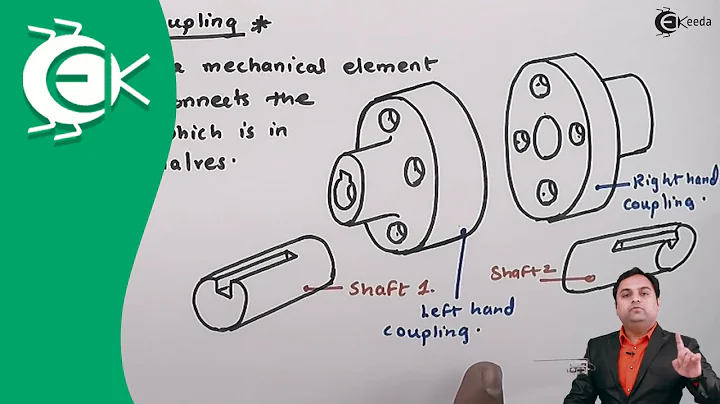 upling *
a mechanical element
onnects the
which is in
alves.
Right hand
coupling.
Shaft 1.
Shaft 2
Left hand
coupling.
EK
Keeda